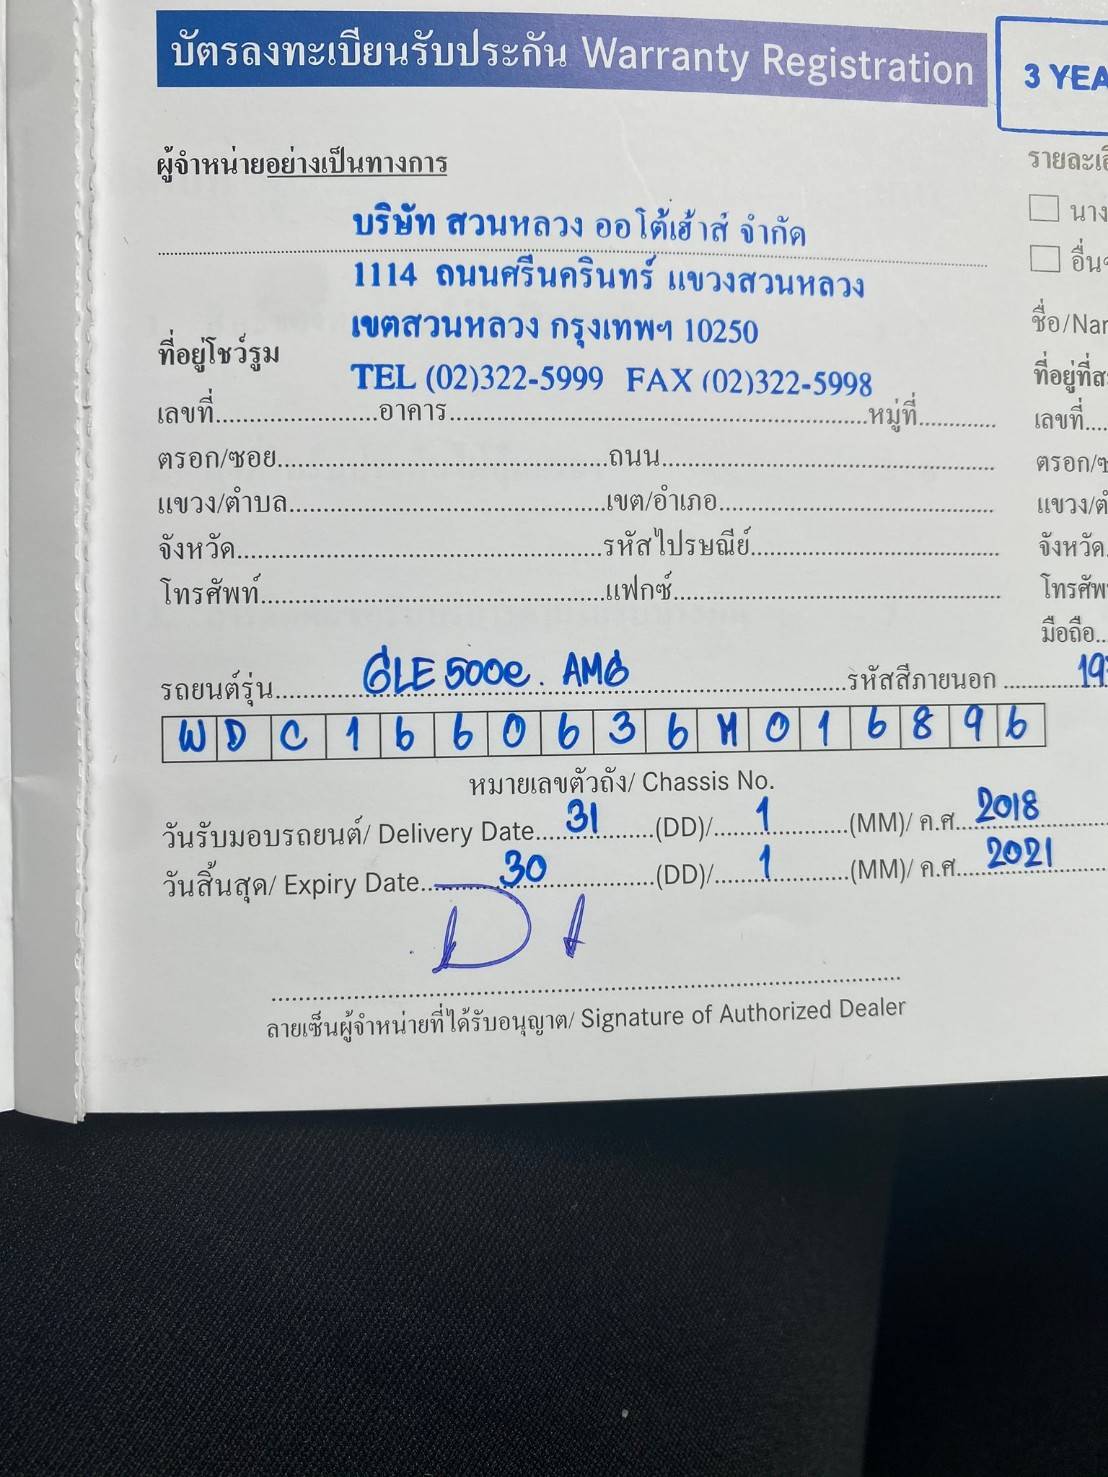 บัตรลงทะเบียนรับประกัน Warranty Registration
3 YEA
ผู้จำหน่ายอย่างเป็นทางการ
บริษัท สวนหลวง ออโต้เฮ้าส์ จำกัด
1114 ถนนศรีนครินทร์ แขวงสวนหลวง
เขตสวนหลวง กรุงเทพฯ 10250
ที่อยู่โชว์รูม
TEL (02)322-5999 FAX (02)322-5998
เลขที่....................อาคาร....................หมู่ที่.............
ตรอก/ซอย....................ถนน....................
แขวง/ตำบล....................เขต/อำเภอ....................
จังหวัด....................รหัสไปรษณีย์....................
โทรศัพท์....................แฟกซ์....................
รถยนต์รุ่น.......... GLE 500e. AMG ..........รหัสสีภายนอก .......... 19
WDC1660636M016896
หมายเลขตัวถัง/ Chassis No.
วันรับมอบรถยนต์/ Delivery Date.... 31 ....(DD)/.... 1 ....(MM)/ ค.ศ. 2018
วันสิ้นสุด/ Expiry Date.... 30 ....(DD)/.... 1 ....(MM)/ ค.ศ. 2021
ลายเซ็นผู้จำหน่ายที่ได้รับอนุญาต/ Signature of Authorized Dealer
นาง
ชื่อ/Nar
เลขที่....
จังหวัด
มือถือ..